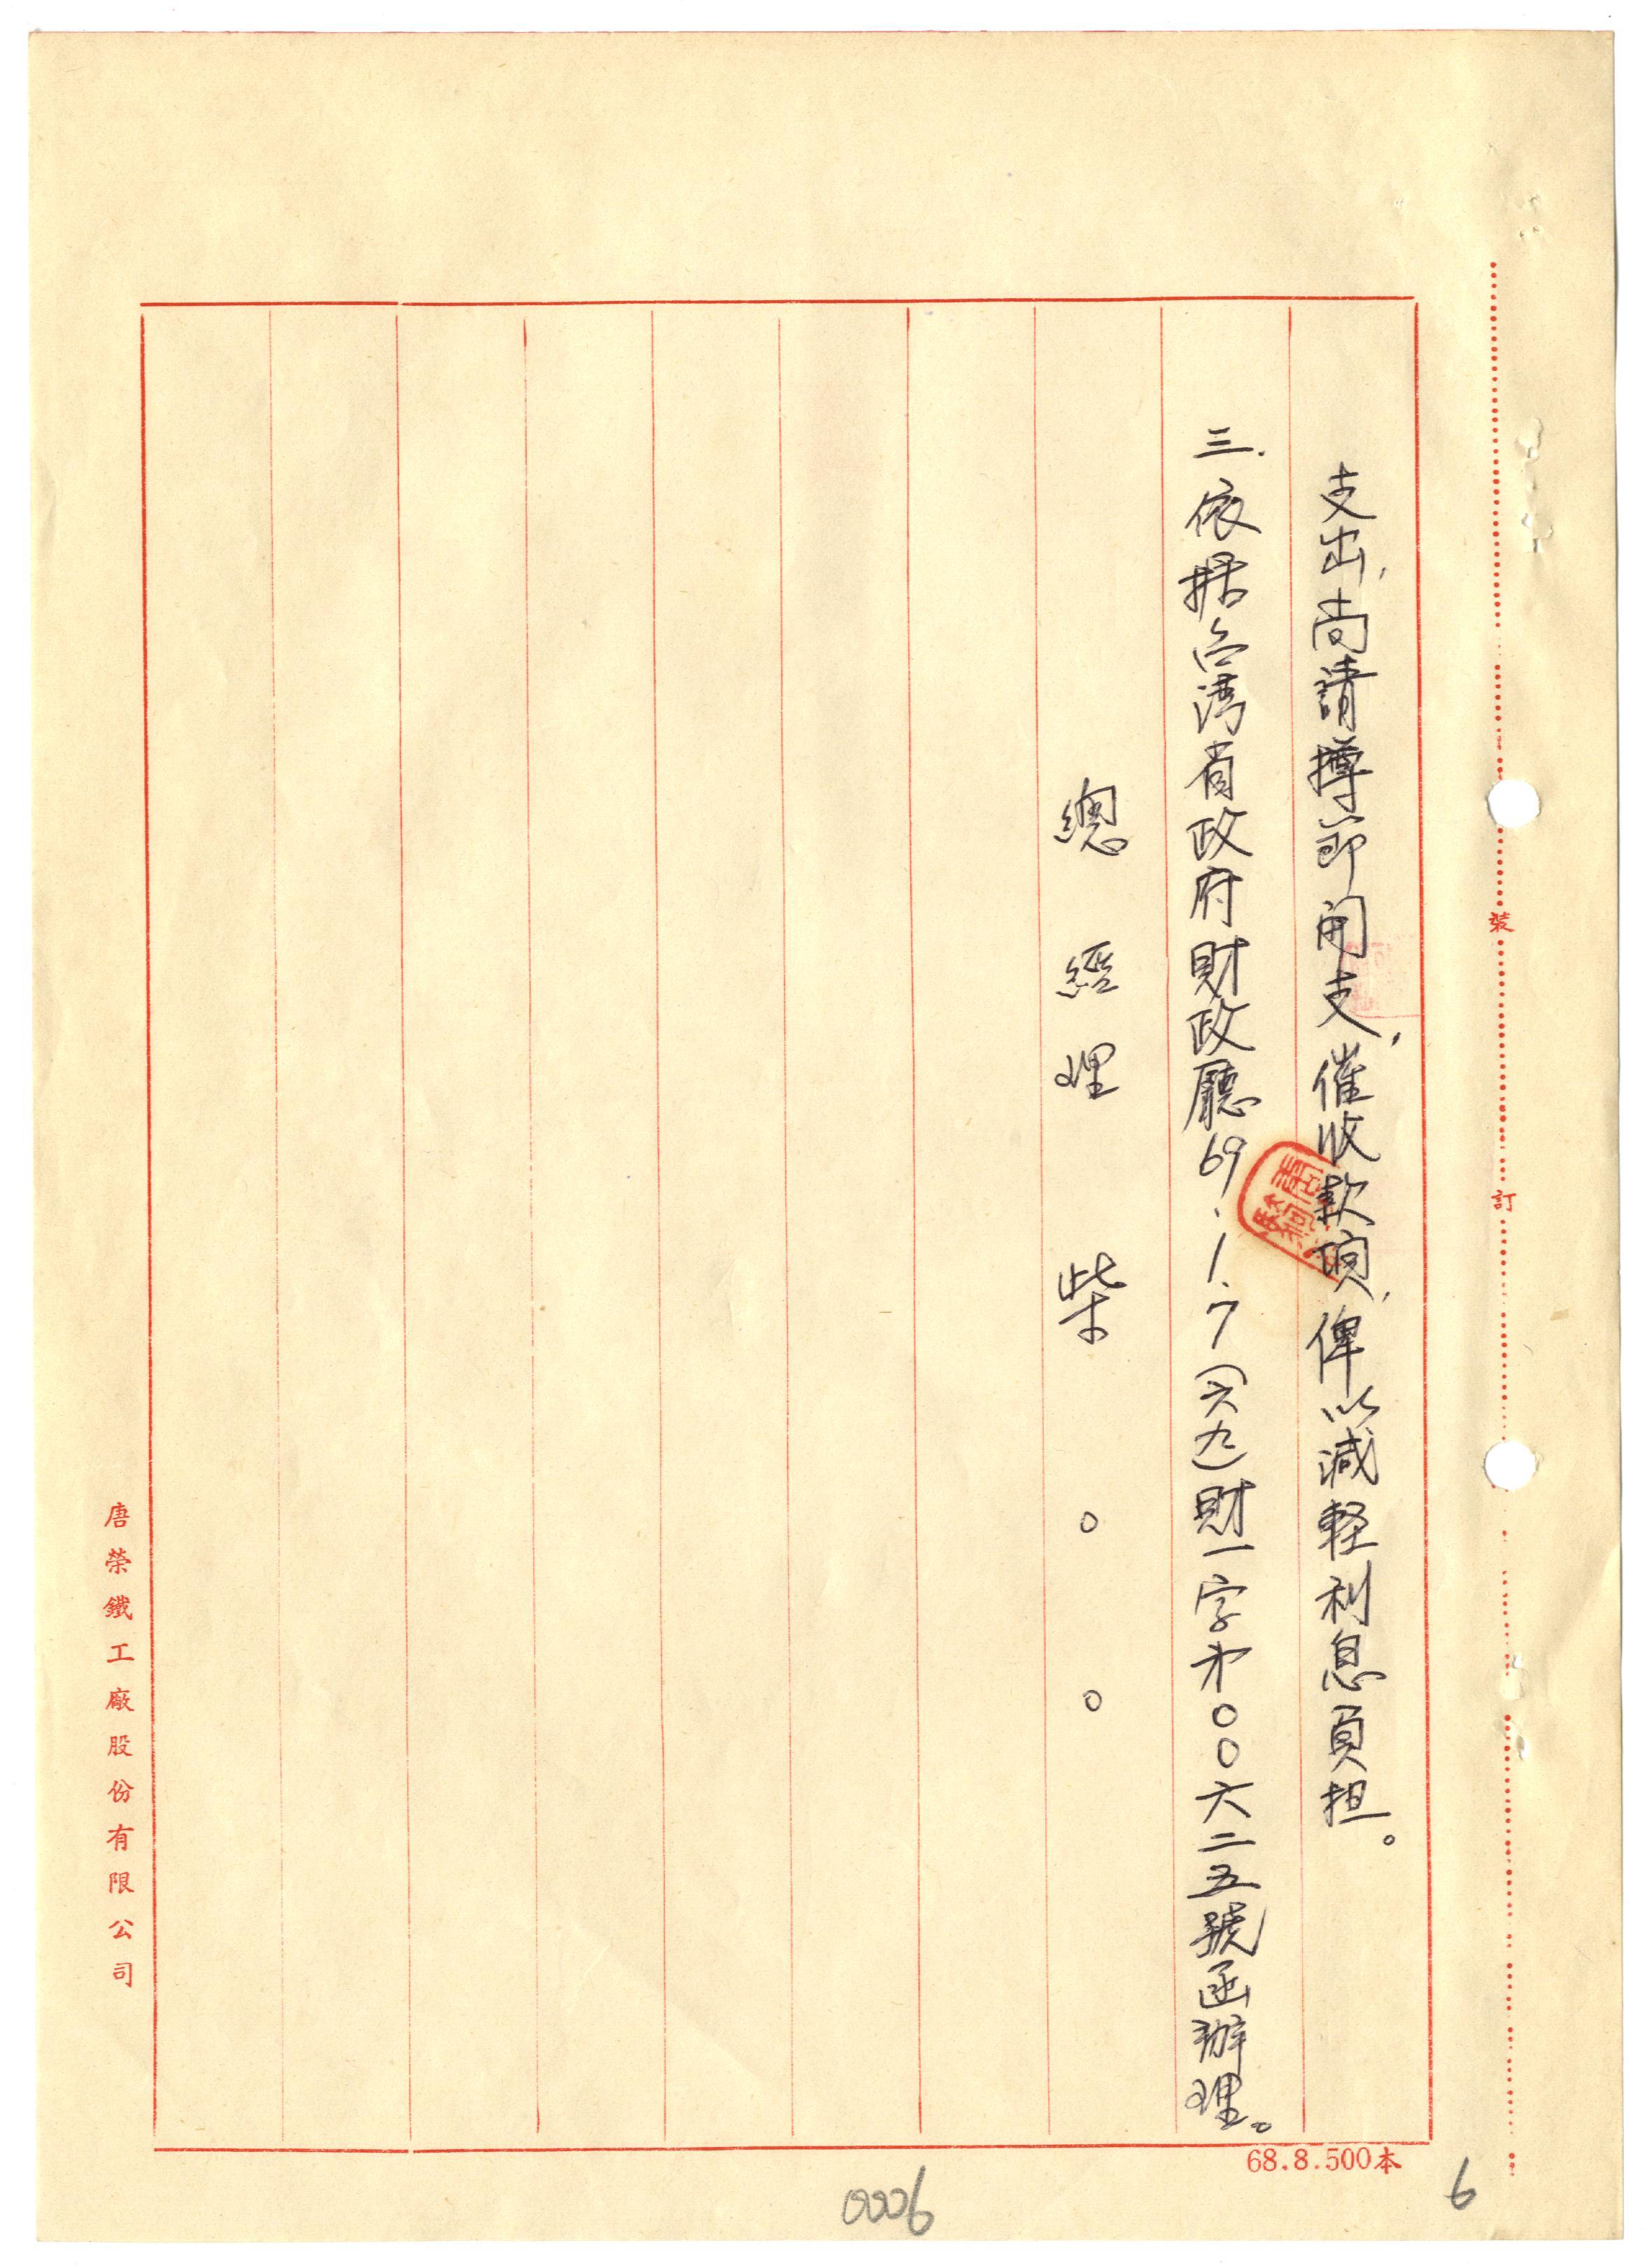 支出，尚請撙節開支，催收款項，俾以減軽利息負担。
三.依据台湾省政府財政廳69.1.7(六九)財一字第00六二五號函辦理。
總經理 柴 ○ ○
唐榮鐵工廠股份有限公司
裝
訂
68.8.500本
0006
6